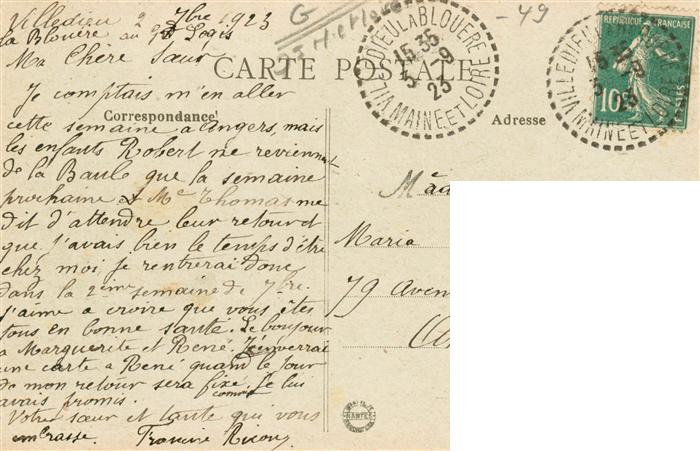 Villedieu 2 7bre 1923
la Blouère au Logis
Ma Chère Sœur
G
-49
CARTE POSTALE
Correspondance
Adresse
Je comptais m'en aller
cette semaine a Angers, mais
les enfants Robert ne reviennent
de la Baule que la semaine
prochaine & Me Thomas me
dit d'attendre leur retour et
que j'avais bien le temps d'être
chez moi. je rentrerai donc
dans la 2ème semaine de 7bre.
j'aime a croire que vous êtes
tous en bonne santé. Le bonjour
a Marguerite et René. J'enverrai
une carte a René quand le jour
de mon retour sera fixé, comme je lui
avais promis.
Votre sœur et tante qui vous
embrasse.
VILLEDIEU LA BLOUERE
15 35
5 -9
23
MAINE ET LOIRE
VILLEDIEU LA BLOUERE
15 35
5 -9
23
MAINE ET LOIRE
REPUBLIQUE FRANÇAISE
10c
POSTES
Mad
Maria
79 Aven
NANTES